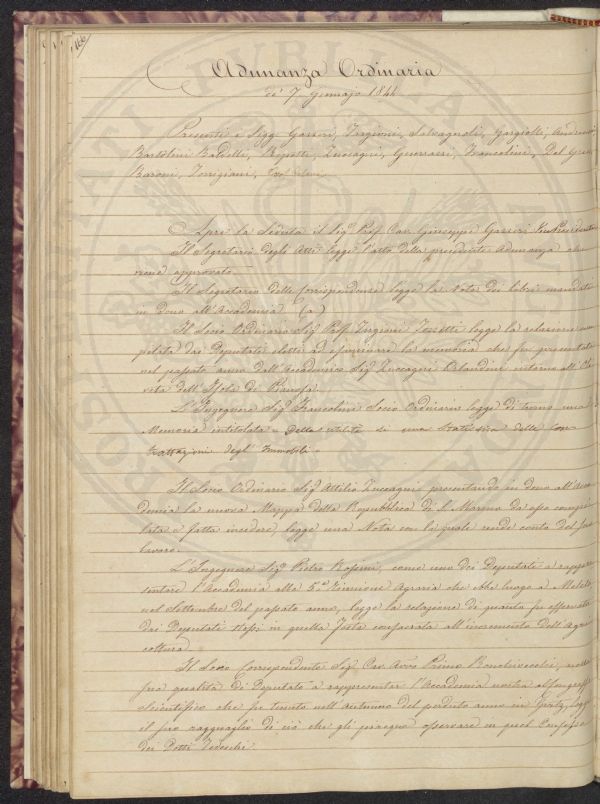 166
Adunanza Ordinaria
di 7. Gennajo 1844
Presenti i Sigg. Gazzeri, Targioni, Salvagnoli, Gargiolli,
Bartolini Baldelli, Repetti, Zuccagni, Guerrazzi, Francolini, Del Gre
Baroni, Torrigiani,
Apre la Seduta il Sig. Prof. Cav. Giuseppe Gazzeri VicePresidente
Il Segretario degli Atti legge l'atto della precedente Adunanza che
viene approvato.
Il Segretario delle Corrispondenze legge la Nota dei libri mandati
in Dono all'Accademia (a)
Il Socio Ordinario Sig. Prof. Targioni Tozzetti legge la relazione com
pilata dai Deputati eletti ad esaminare la memoria che fu presentata
nel passato anno dall'Accademico Sig. Zuccagni Orlandini intorno all'
dell'Isola di Pianosa.
L'Ingegnere Sig. Francolini Socio Ordinario legge di turno una
Memoria intitolata = Della utilità di una Statistica delle Con
trattazioni degl'Immobili =
Il Socio Ordinario Sig. Attilio Zuccagni presentando in dono all'Acca
demia la nuova Mappa della Repubblica di S. Marino da esso compi
lata e fatta incidere, legge una Nota con la quale rende conto del suo
lavoro.
L'Ingegnere Sig. Pietro Rossini, come uno dei Deputati a rappre
sentare l'Accademia alla 5.a Riunione Agraria che ebbe luogo a Meleto
nel Settembre del passato anno, legge la relazione di quanto fu osservato
dai Deputati stessi in quella Festa consacrata all'incremento dell'Agri
coltura.
Il Socio Corrispondente Sig. Cav. Avv. Primo Ronchivecchi, nella
sua qualità di Deputato a rappresentar l'Accademia nostra al Congresso
Scientifico che fu tenuto nell'Autunno del perduto anno in Gratz, legge
il suo ragguaglio di ciò che gli parve osservare in quel Consesso
dei Dotti Tedeschi.